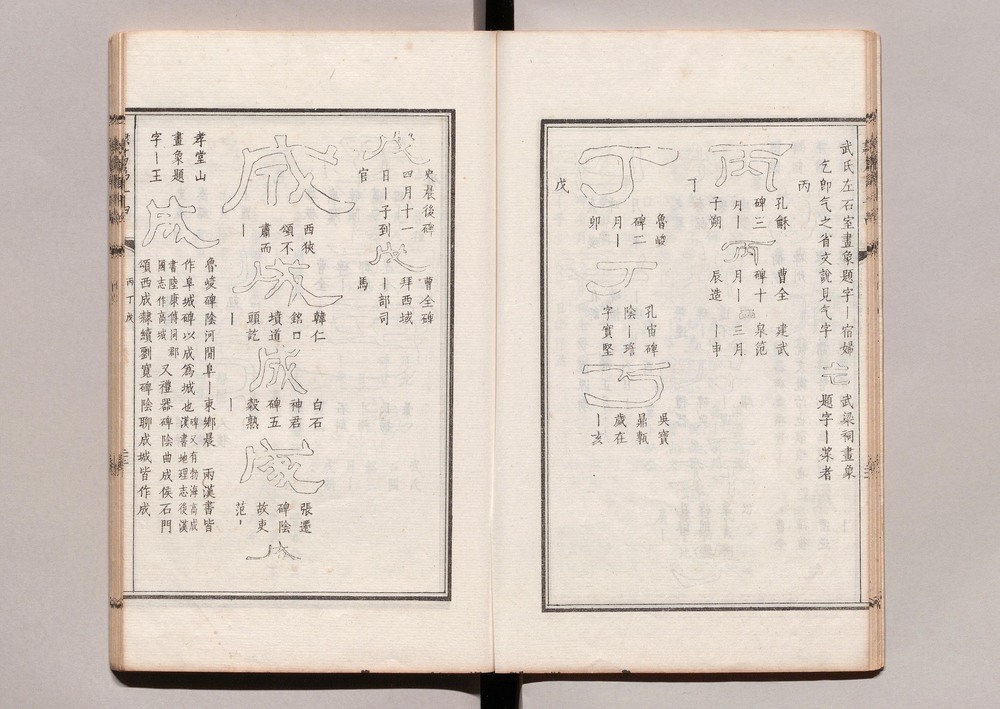 武氏左石室畫象題字丨宿婦
乞卽气之省文說見气字
武梁祠畫象
題字丨漿者
丙
丙
孔龢
碑三
月丨
子朔
丙
曹全
碑十
月丨
辰造
建武
泉范
三月
丨申
丁
丁
魯峻
碑二
月丨
卯
丁
孔宙碑
陰丨
字實堅
丂
吳寶
鼎甎
歲在
丨亥
戊
戊
史晨後碑
四月十一
日丨子到
官
戊
曹全碑
拜西域
丨部司
馬
成
西狹
頌不
肅而
丨
成
韓仁
銘口
墳道
頭訖
丨
成
白石
神君
碑五
穀熟
丨
成
張遷
碑陰
故吏
范丨
成
孝堂山
畫象題
字丨王
成
魯峻碑陰河閒阜丨東鄉晨
兩漢書皆
作阜城碑以成為城也
碑又有勃海高成
漢書地理志後漢
書陸康傳同郡
國志作高城
又禮器碑陰曲成侯石門
頌西成隸續劉寬碑陰聊成城皆作成
丙丁戊